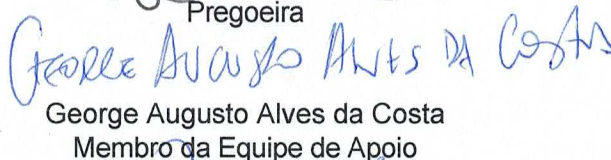 Pregoeira
George Augusto Alves da Costa
George Augusto Alves da Costa
Membro da Equipe de Apoio